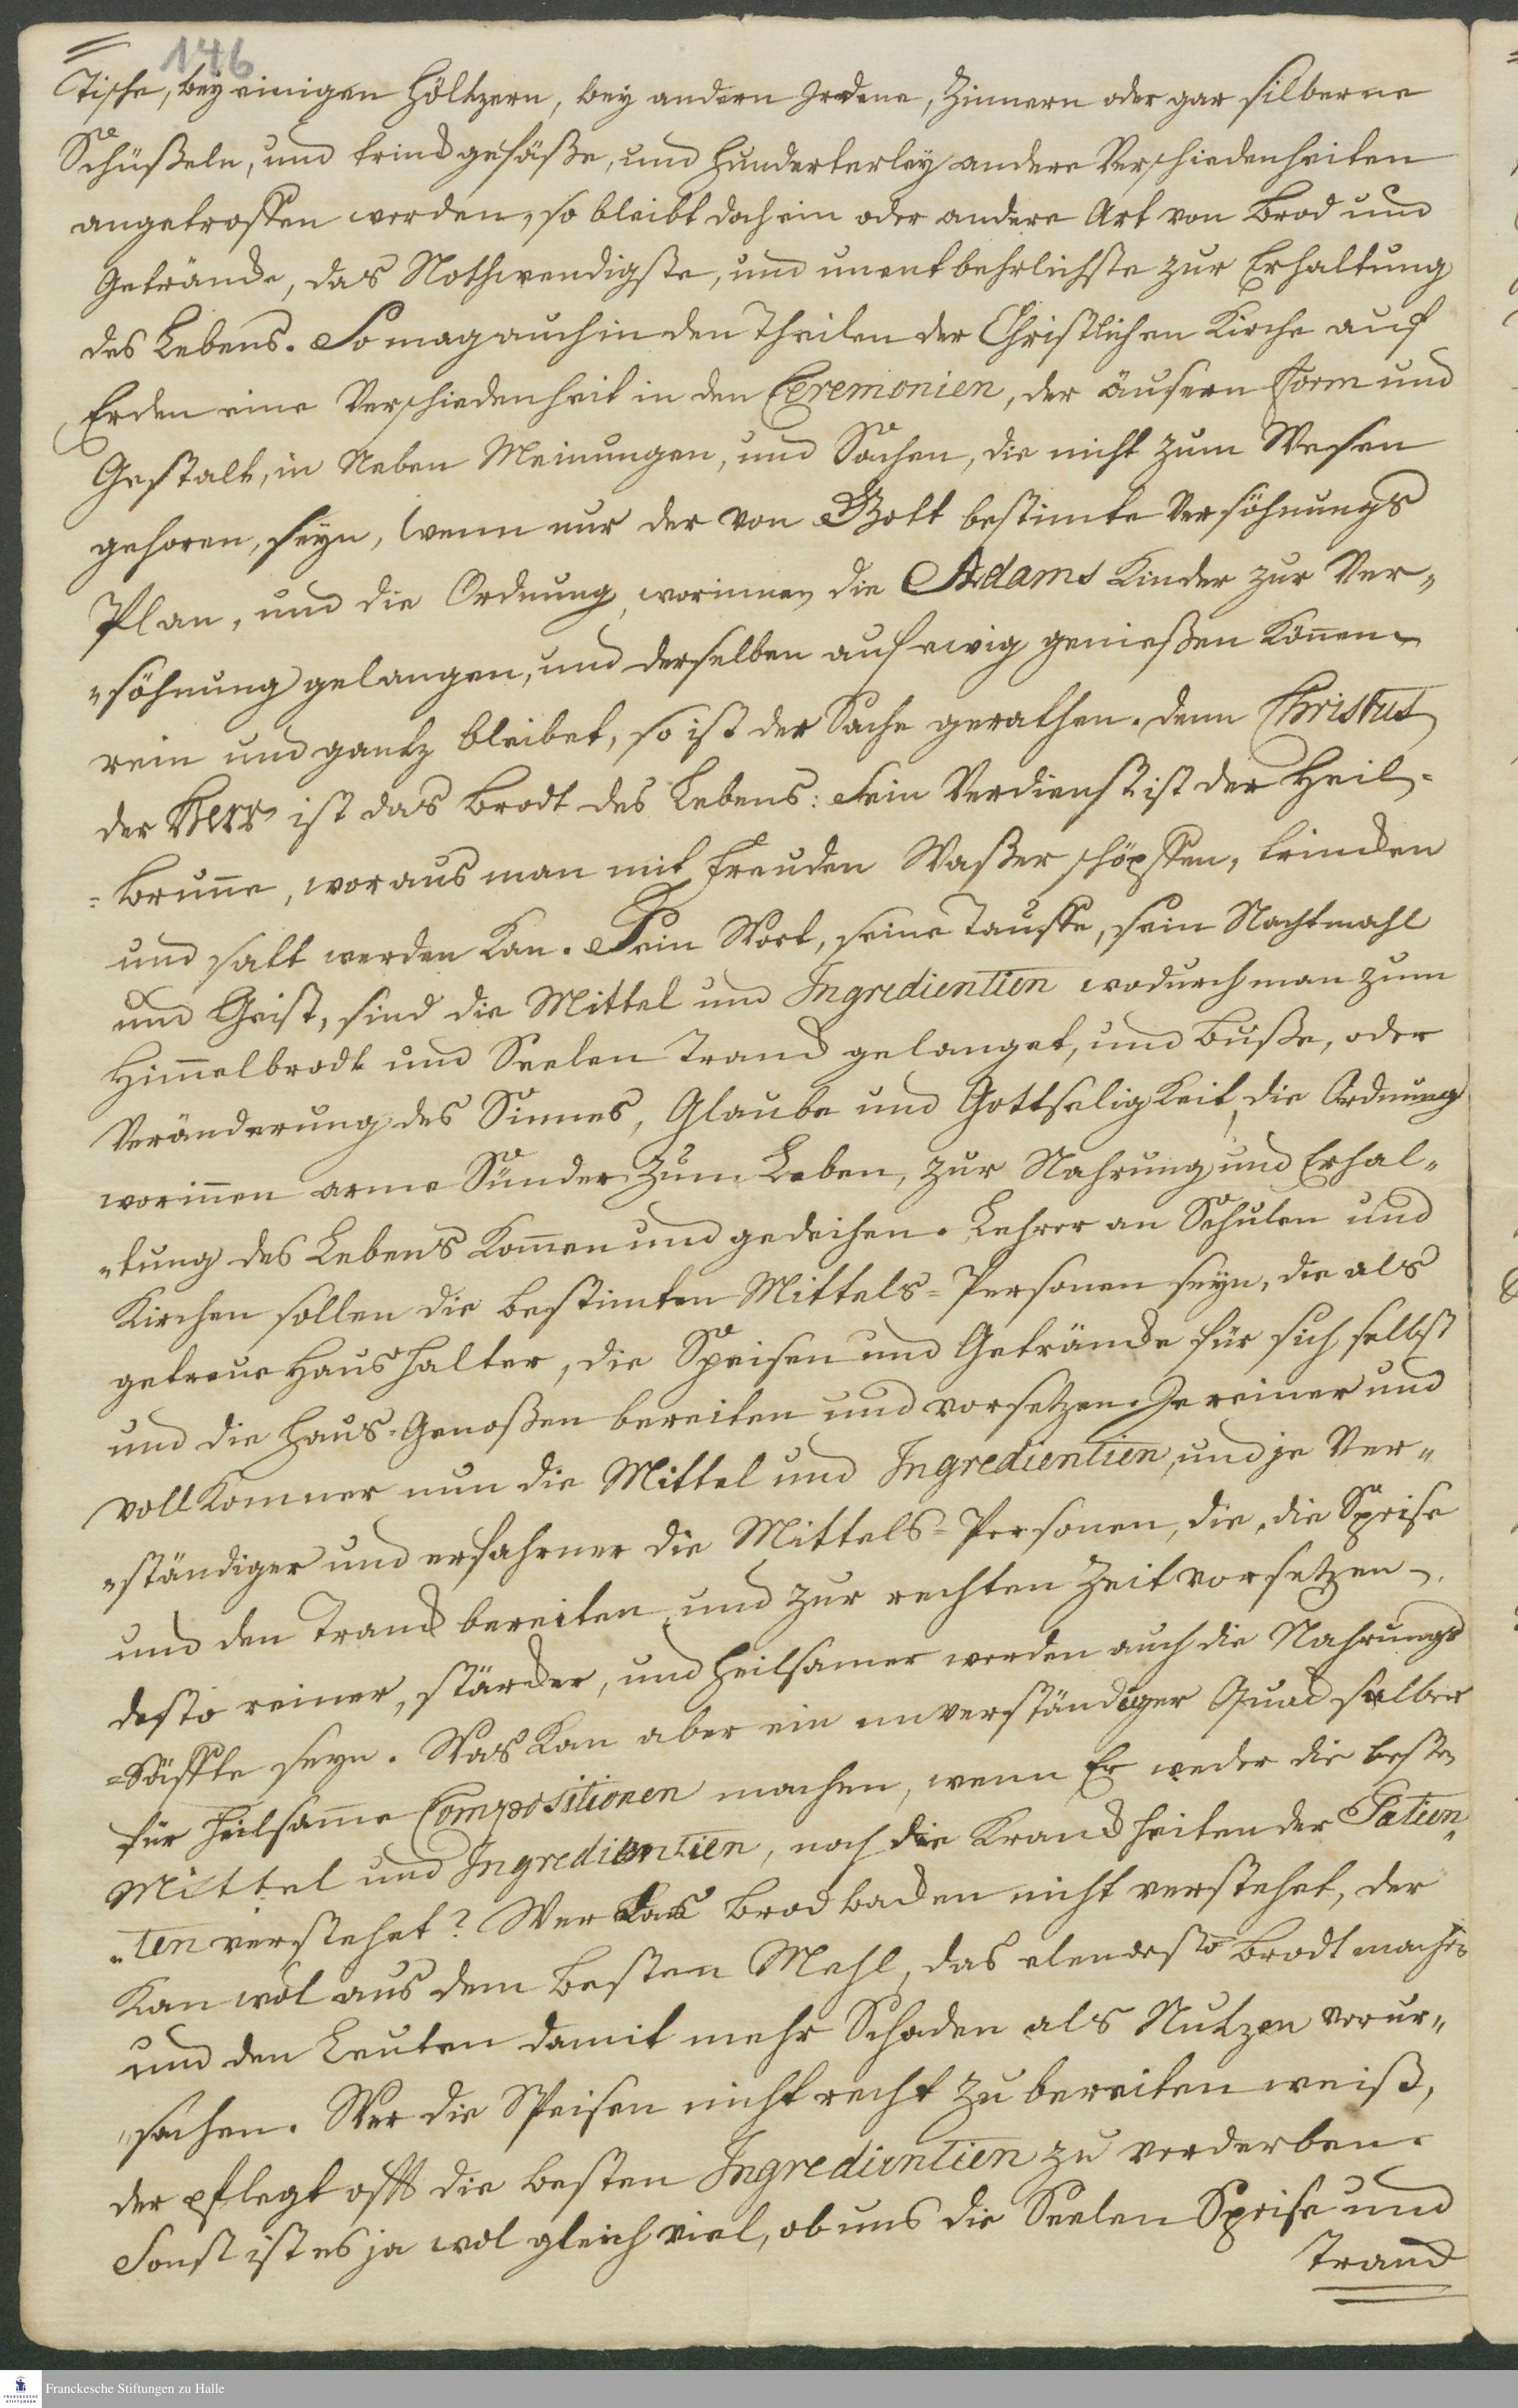 146
Tische, bey einigen Höltzern, bey andern Irdene, Zinnern oder gar silberne
Schüßeln, und trinckgefäße, und hunderterley andere Verschiedenheiten
angetroffen werden, so bleibt doch ein oder andere Art von Brod und
Geträncke, das Nothwendigste, und unentbehrlichste zur Erhaltung
des Lebens. So mag auch in den Theilen der Christlichen Kirche auf
Erden eine Verschiedenheit in den Ceremonien, der äusern Form und
Gestalt, in Neben Meinungen, und Sachen, die nicht zum Wesen
gehoren, seyn, wenn nur der von Gott bestimte Versöhnungs
Plan, und die Ordnung, worinnen die Adams Kinder zur Ver„
„söhnung gelangen, und derselben auf ewig genießen Können,
rein und gantz bleibet, so ist der Sache gerathen. denn Christus
der Herr ist das Brodt des Lebens: Sein Verdienst ist der Heil=
=Brunne, woraus man mit Freuden Waßer schöpffen, trincken
und satt werden Kan. Sein Wort, seine Tauffe, sein Nachtmahl
und Geist, sind die Mittel und Ingredientien wodurch man zum
Himmelbrodt und Seelen Tranck gelanget, und Buße, oder
Veränderung des Sinnes, Glaube und GottseligKeit, die Ordnung
worinnen arme Sünder zum Leben, zur Nahrung und Erhal„
„tung des Lebens Kommen und gedeihen. Lehrer an Schulen und
Kirchen sollen die bestimten Mittels=Personen seyn, die als
getreue Haushalter, die Speisen und Geträncke für sich selbst
und die Haus-Genoßen bereiten und vorsetzen. Je reiner und
vollKomner nun die Mittel und Ingredientien, und je Ver„
„ständiger und erfahrner die Mittels=Personen, die, die Speise
und den Tranck bereiten, und zur rechten Zeit vorsetzen,
desto reiner, stärcker, und heilsamer werden auch die Nahrungs
=Säffte seyn. Was Kan aber ein unverständiger Quacksalber
für heilsame Compositionen machen, wenn Er weder die besten
Mittel und Ingredientien, noch die Kranckheiten der Patien„
„ten verstehet? Wer das Brodbacken nicht verstehet, der
Kan wol aus dem besten Mehl, das elendeste Brodt machen
und den Leuten damit mehr Schaden als Nutzen verur„
„sachen. Wer die Speisen nicht recht zu bereiten weiß,
der pflegt offt die besten Ingredientien zu verderben.
Sonst ist es ja wol gleich viel, ob uns die Seelen Speise und
Tranck
Franckesche Stiftungen zu Halle